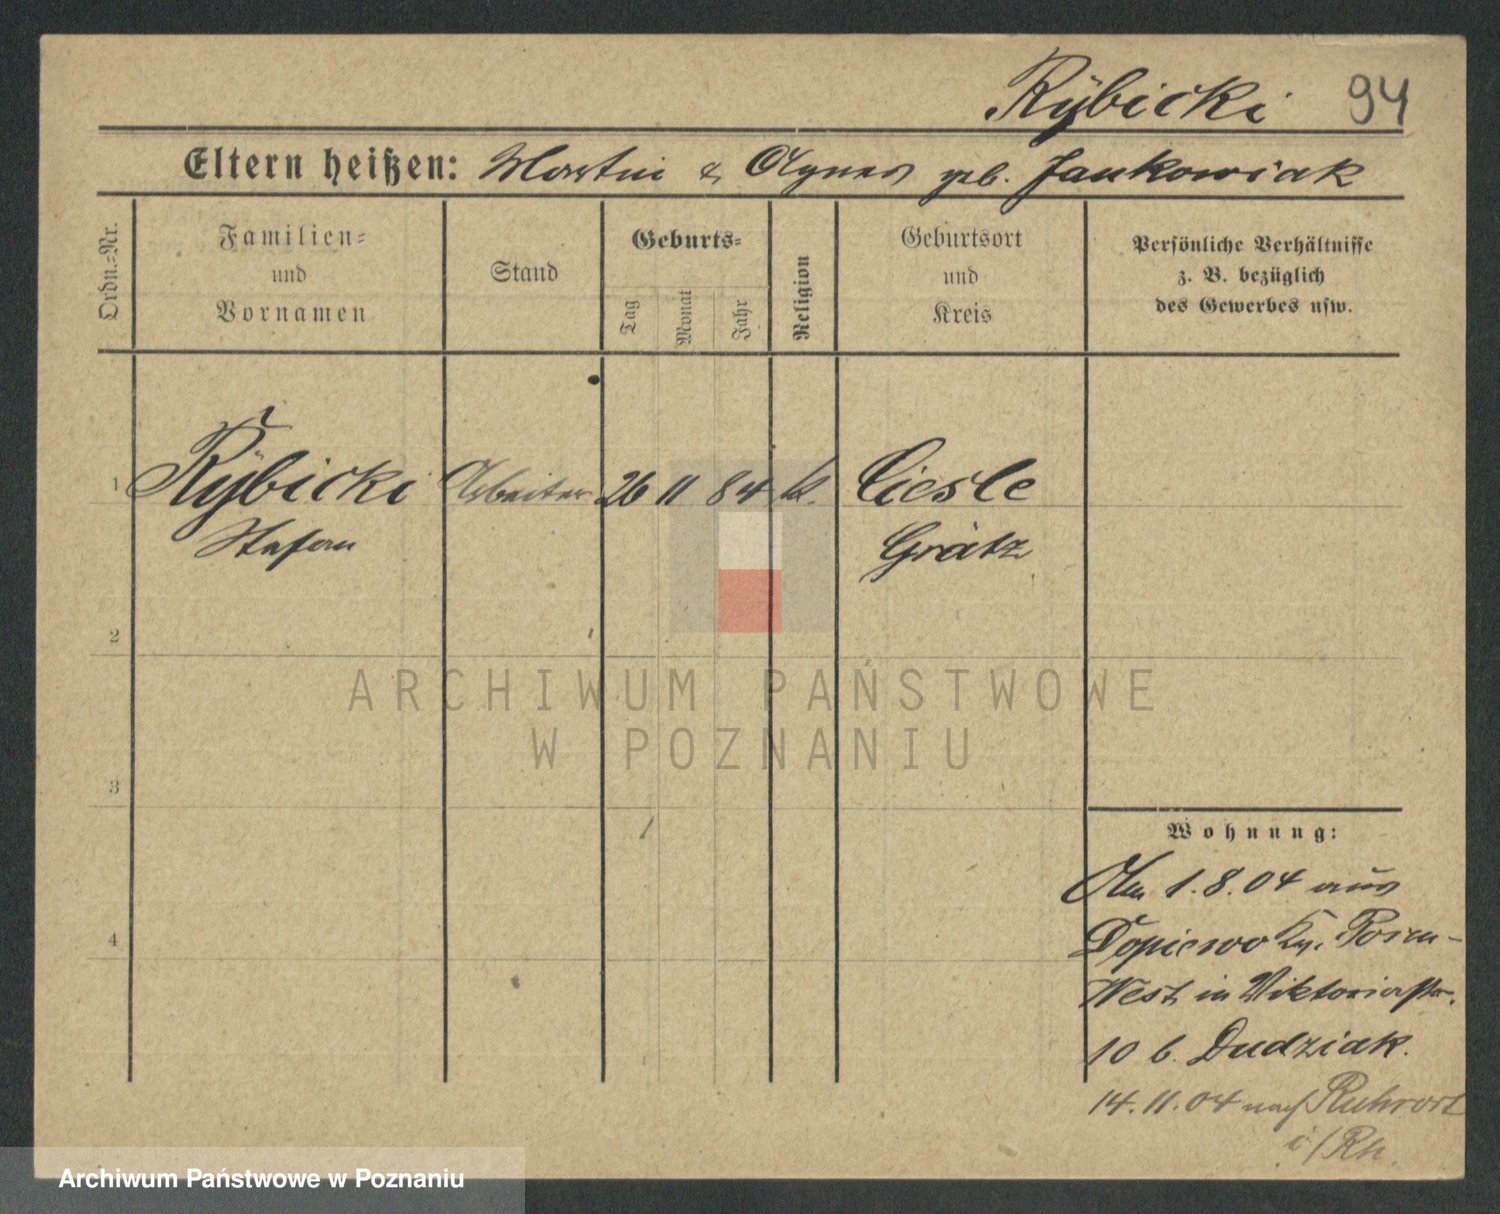 Rÿbicki 94
Eltern heißen: Martin & Agnes geb. Jankowiak
Ordn.-Nr.
Familien-
und
Vornamen
Stand
Geburts-
Tag
Monat
Jahr
Religion
Geburtsort
und
Kreis
Persönliche Verhältnisse
z. B. bezüglich
des Gewerbes usw.
1 Rÿbicki Arbeiter 26 11 84 k. Ciesle
Stefan Grätz
2
3
4
ARCHIWUM PAŃSTWOWE
W POZNANIU
Wohnung:
Am 1.8.04 aus
Dopiewo Kr. Posen-
West in Viktoriastr.
10 b. Dudziak.
14.11.04 nach Ruhrort
i/Rh.
Archiwum Państwowe w Poznaniu